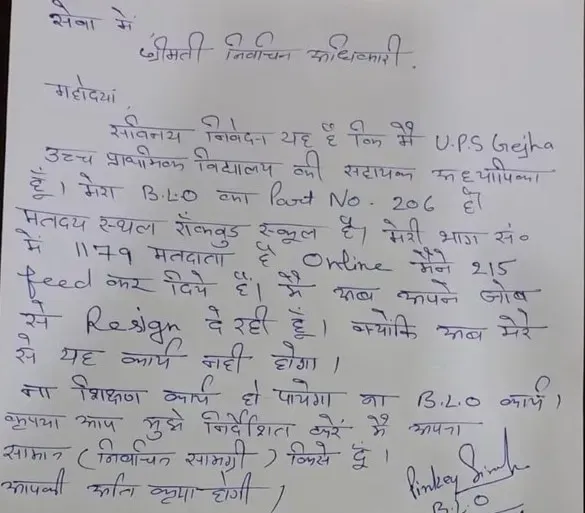 सेवा में
श्रीमती निर्वाचन अधिकारी.
महोदया,
सविनय निवेदन यह है कि मैं U.P.S Gejha
उच्च प्राथमिक विद्यालय की सहायक अध्यापिका
हूँ। मेरा B.L.O का Part No. 206 है।
मतदय स्थल रॉकवुड स्कूल है। मेरी भाग सं०
में 1179 मतदाता है Online मैंने 215
feed कर दिये हैं। मैं अब अपने जोब
से Resign दे रही हूँ। क्योंकि अब मेरे
से यह कार्य नही होगा।
ना शिक्षण कार्य हो पायेगा ना B.L.O कार्य।
कृपया आप मुझे निर्देशित करें मैं अपना
सामान (निर्वाचन सामग्री) किसे दूं।
आपकी अति कृपा होगी।
Pinkey Singh
B.L.O